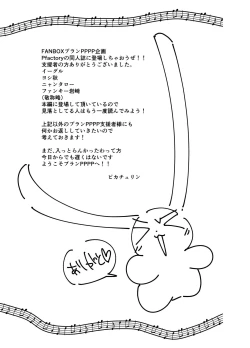 FANBOXプランPPPP企画
Pfactoryの同人誌に登場しちゃおうぜ！！
支援者の方ありがとうございました。
イーグル
ヨシ秋
ニャンタロー
ファンキー岩崎
(敬称略)
本編に登場して頂いているので
見落としてる人はもう一度読んでみよう！
上記以外のプランPPPP支援者様にも
何かお返ししていきたいので
考えておきます！
まだ、入っとらんかったわって方
今日からでも遅くはないです
ようこそプランPPPPへ！！
ピカチュリン
ありがとう♡